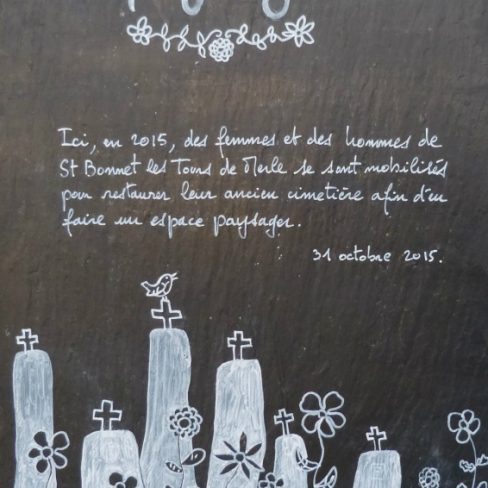 Ici, en 2015, des femmes et des hommes de
St Bonnet les Tours de Merle se sont mobilisés
pour restaurer leur ancien cimetière afin d'en
faire un espace paysager.
31 octobre 2015.